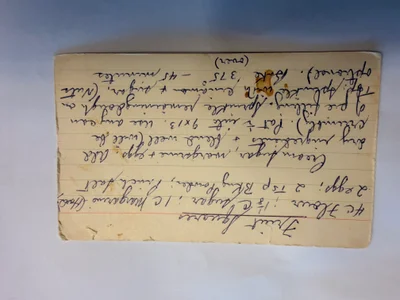 Fruit Squares
4C Flour, 1⅓ C sugar, 1C margarine (Hard)
2 eggs, 2 Tsp Bkng Powder, Pinch salt
Cream sugar, margarine + eggs. Add
dry ingredients. Blend well (will be
crumbly) Pat ½ into 9x13. Use any can
of pie filling. Sprinkle remaining dough on
Top, sprinkle cinnamon + sugar, (Nuts
optional). 375 - 45 minutes
(over)